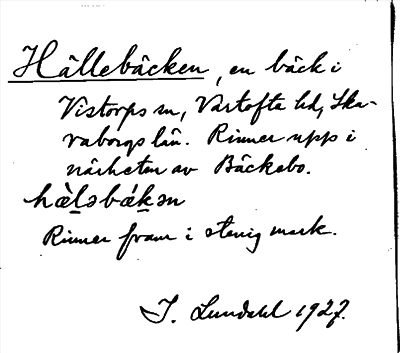 Hällebäcken, en bäck i
Vistorps sn, Vartofta hd, Ska-
raborgs län. Rinner upp i
närheten av Bäckebo.
hæ̀l̠əbák̠ən
Rinner fram i stenig mark.
J. Lundahl 1927.